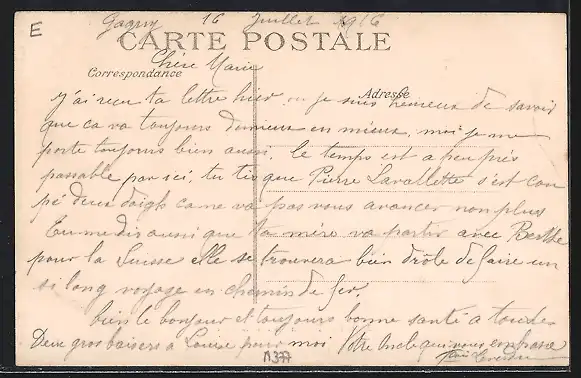 E
Gagny 16 Juillet 1916
CARTE POSTALE
Chère Marie
Correspondance
Adresse
j'ai reçu ta lettre hier ou je suis heureux de savoir
que ca va toujours de mieux en mieux, moi je me
porte toujours bien aussi, le temps est a peu près
passable par ici, tu dis que Pierre Lavallette s'est cou
pé deux doigts ca ne va pas vous avancer non plus
tu me dis aussi que ta mère va partir avec Berthe
pour la Suisse elle se trouvera bien drôle de faire un
si long voyage en chemin de fer
bien le bonjour et toujours bonne santé a toutes
Deux gros baisers a Louise pour moi Votre Oncle qui vous embrasse
A377